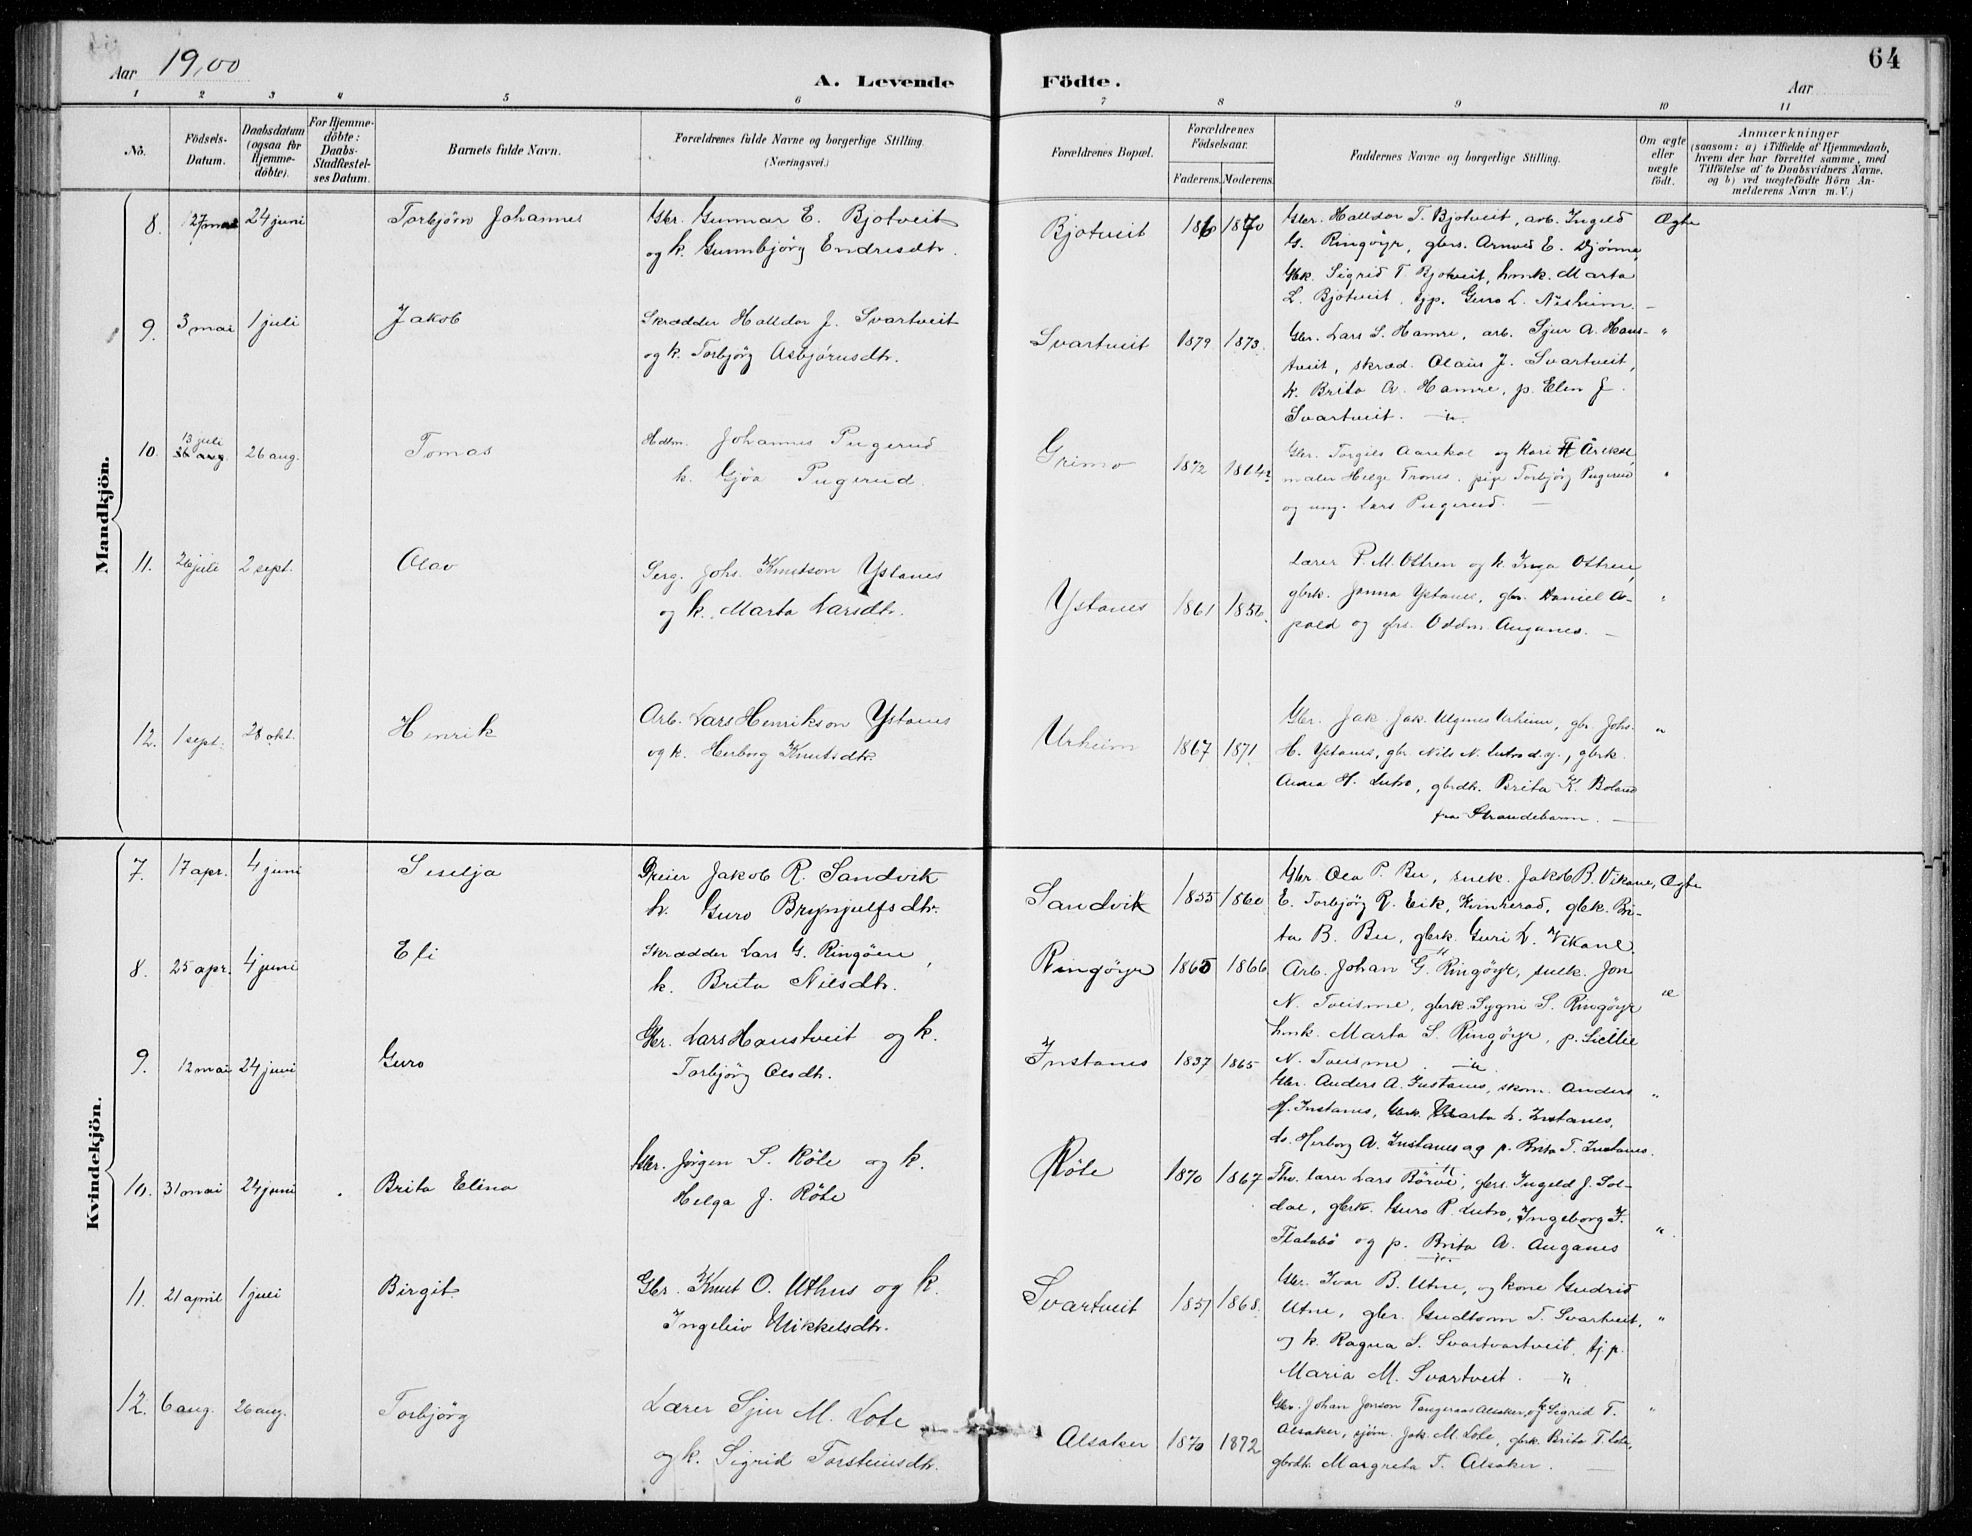 64
Aar 19,00
A. Levende Födte.
Aar
1 2 3 4 5 6 7 8 9 10 11
No.
Födsels-Datum.
Daabsdatum (ogsaa for Hjemme-döbte).
For Hjemme-döbte: Daabs-Stadfæstel-ses Datum.
Barnets fulde Navn.
Forældrenes fulde Navne og borgerlige Stilling. (Næringsvei.)
Forældrenes Bopæl.
Forældrenes Födselsaar.
Faderens. Moderens.
Faddernes Navne og borgerlige Stilling.
Om ægte eller uægte födt.
Anmærkninger
(saasom: a) i Tilfælde af Hjemmedaab,
hvem der har forrettet samme, med
Tilföielse af to Daabsvidners Navne.
og b) ved uægtefödte Börn An-
melderens Navn m. V.)
Mandkjön.
8. 27 mai 24 juni Torbjörn Johannes Gbr. Gunnar E. Bjotveit
og k. Gunnbjörg Endresdtr.
Bjotveit 1870
Gbr. Halldor T. Bjotveit, arb. Ingeld
G. Ringöyr, gbrs. Arnved E. Djönne,
Gbk. Sigrid T. Bjotveit, hmk. Marta
L. Bjotveit, tjp. Guro L. Nesheim. —
Ægte
9. 3 mai 1 juli Jakob Skrædder Halldor J. Svartveit
og k. Torbjörg Asbjörnsdtr.
Svartveit 1879. 1873.
Gbr. Lars S. Hamre, arb. Sjur A. Haus-
tveit, skræd. Olaus J. Svartveit,
k. Brita A. Hamre, p. Elen J.
Svartveit. —"—
"
10. 13 juli 26 aug. 26 aug. Tomas Hdlm. Johannes Pugerud
k. Gjöa Pugerud.
Grimo 1872 1864
Gbr. Torgils Aarekol og Kari Årekol,
maler Helge Trones. pige Torbjörg Pugerud
og ung. Lars Pugerud. —
"
11. 26 juli 2 sept. Olav Serg. Johs. Knutson Ystanes
og k. Marta Larsdtr.
Ystanes 1861 1856.
Lærer P. M. Ostren og k. Inga Ostren,
gbrk. Janna Ystanes, gbr. Daniel A-
pold og gbrs. Oddm. Auganes. —
"
12. 1 sept. 28 okt. Henrik Arb. Lars Henrikson Ystanes
og k. Herborg Knutsdtr.
Urheim 1867 1871
Gbr. Jak. Jak. Ulgenes Urheim, gbr. Johs.
H. Ystanes, gbr. Nils N. Lutro d.y., gbrk.
Anna H. Lutro, gbrdtr. Brita K. Boland
fra Strandebarm. —
"
Kvindekjön.
7. 17 apr. 4 juni Siselja Dreier Jakob R. Sandvik
k. Guro Brynjulfsdtr.
Sandvik 1855 1860
Gbr. Ola P. Bu, snek. Jakob B. Vikane,
E. Torbjörg R. Eik, Kvinherad, gbrk. Bri-
ta B. Bu, gbrk. Guri L. Vikane.
Ægte
8. 25 apr. 4 juni Eli Skrædder Lars G. Ringöen,
k. Brita Nilsdtr.
Ringöyr 1865 1866
Arb. Johan G. Ringöyr, snek. Jon
N. Tveisme, gbrk. Sygni S. Ringöyr
hmk. Marta S. Ringöyr, p. Sicelie
N. Tveisme. —"—
"
9. 12 mai 24 juni Guro Gbr. Lars Haustveit og k.
Torbjörg Olsdtr.
Instanes 1837 1865
Gbr. Anders A. Instanes, skom. Anders
H. Instanes, Gbrk. Marta L. Instanes,
do. Herborg A. Instanes og p. Brita T. Instanes.
"
10. 31 mai 24 juni Brita Elina Gbr. Jörgen S. Röte og k.
Helga J. Röte
Röte 1870 1867
Fhv. lærer Lars Börve, gbrs. Ingeld J. Sol-
dal, gbrk. Guro R. Lutro, Ingeborg J.
Flatabö og p. Brita A. Auganes
"
11. 21 april 1 juli Birgit Gbr. Knut O. Uthus og k.
Ingeleiv Mikkelsdtr.
Svartveit 1857 1868.
Gbr. Ivar B. Utne, og kone Gudrid
Utne, gbr. Gudtorm T. Svartveit,
og k. Ragna S. Svartvartveit, tj.p.
Maria M. Svartveit. "
"
12. 6 aug. 26 aug. Torbjörg Lærer Sjur M. Lote
og k. Sigrid Torsteinsdtr.
Alsaker 1870 1872
Gbr. Johan Jonson Tangeraas Alsaker, og k. Sigrid T.
Alsaker, sjöm. Jak. M. Lote, gbrk. Brita T. Lote,
gbrdtr. Margreta T. Alsaker. —
"